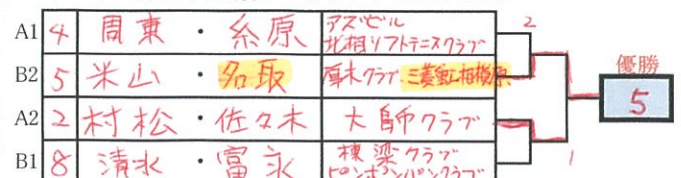 A1 4 周東・糸原 アズビル 2
北相ソフトテニスクラブ
B2 5 米山・名取 厚木クラブ・三菱重工相模原 優勝
5
A2 2 村松・佐々木 大師クラブ
B1 8 清水・富永 棟梁クラブ 1
ピンポンパンクラブ